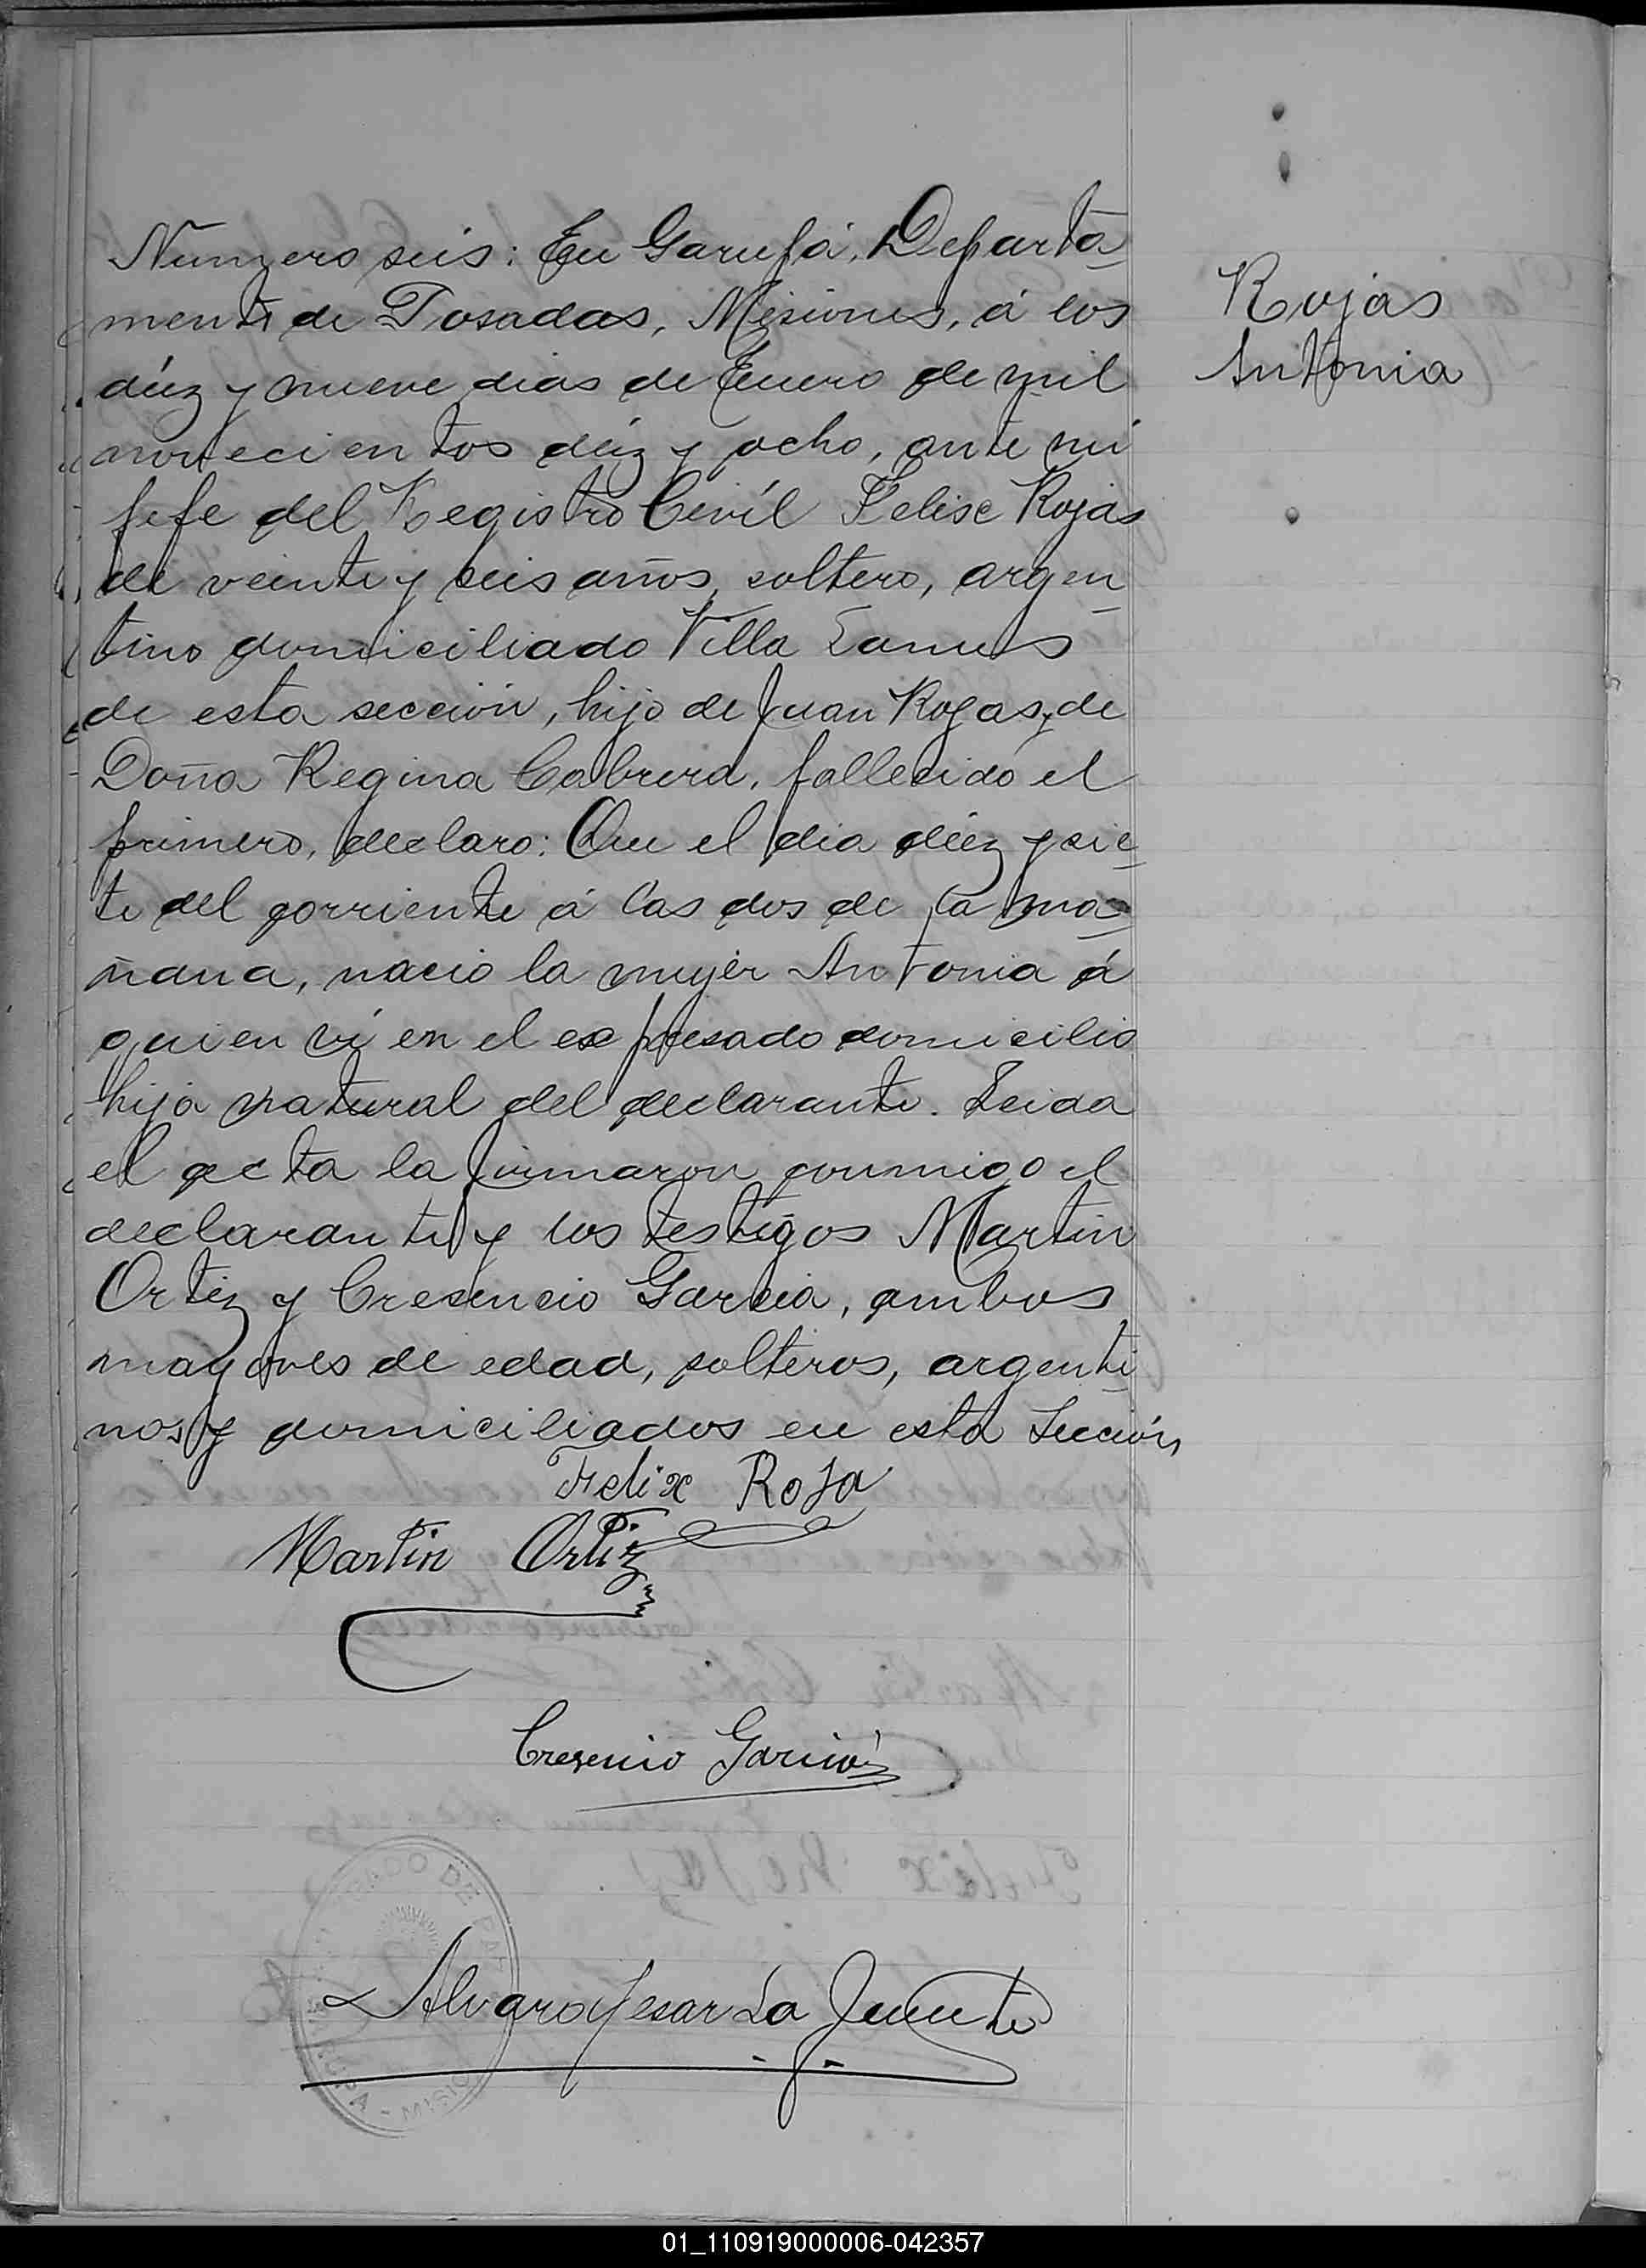 Numero seis: En Garupá, Departa-
mento de Posadas, Misiones, á los
diez y nueve dias de Enero de mil
novecientos diez y ocho, ante mi
Jefe del Registro Civíl Felise Rojas
de veinte y seis años, soltero, argen-
tino domiciliado Villa Lanus
de esta sección, hijo de Juan Rojas y de
Doña Regina Cabrera, fallecido el
primero, declaro: Que el dia diez y sie-
te del corriente á las dos de la ma-
ñana, nacio la mujer Antonia á
quien ví en el expresado domicilio
hija natural del declarante. Leida
el acta la firmaron conmigo el
declarante y los testigos Martin
Ortiz y Cresencio Garcia, ambos
mayores de edad, solteros, argenti-
nos y domiciliados en esta Sección
Rojas
Antonia
Felix Roja
Martin Ortiz
Cresencio Garcia
JUZGADO DE PAZ
GARUPA - MISIONES
Alvaro Cesar La
01_110919000006-042357